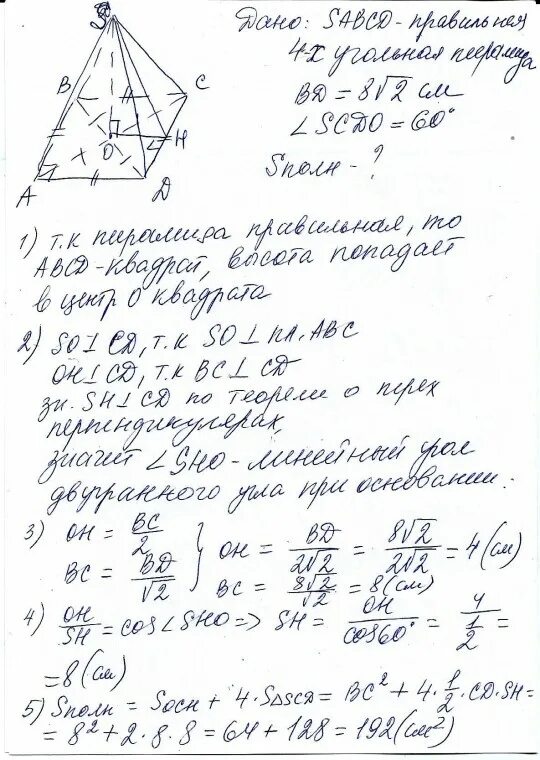 S
B
C
O
H
A
D
Дано: SABCD - правильная
4-х угольная пирамида
BD = 8√2 см
∠SCDO = 60°
Sполн - ?
1) т.к пирамида правильная, то
ABCD - квадрат, высота попадает
в центр О квадрата
2) SO⊥CD, т.к SO⊥пл.ABC
OH⊥CD, т.к BC⊥CD
зн. SH⊥CD по теореме о трех
перпендикулярах,
значит ∠SHO - линейный угол
двугранного угла при основании.
3) OH = BC/2
BC = BD/√2 } OH = BD/2√2 = 8√2/2√2 = 4 (см)
BC = 8√2/√2 = 8 (см)
4) OH/SH = cos∠SHO => SH = OH/cos60° = 4/(1/2) =
= 8 (см)
5) Sполн = Sосн + 4·S△SCD = BC² + 4·1/2·CD·SH =
= 8² + 2·8·8 = 64 + 128 = 192 (см²)